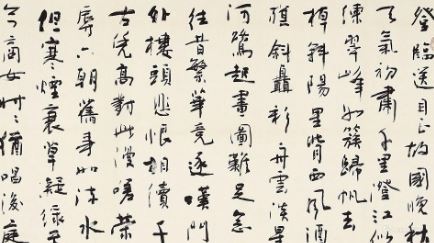 登臨送目正故國晚秋
天氣初肅千里澄江似
練翠峰如簇歸帆去
棹斜陽里背西風酒
旗斜矗彩舟雲淡星
河鷺起畫圖難足念
往昔繁華競逐嘆門
外樓頭悲恨相續千
古凭高對此漫嗟榮
辱六朝舊事如流水
但寒煙衰草凝綠至
今商女時〻猶唱後庭